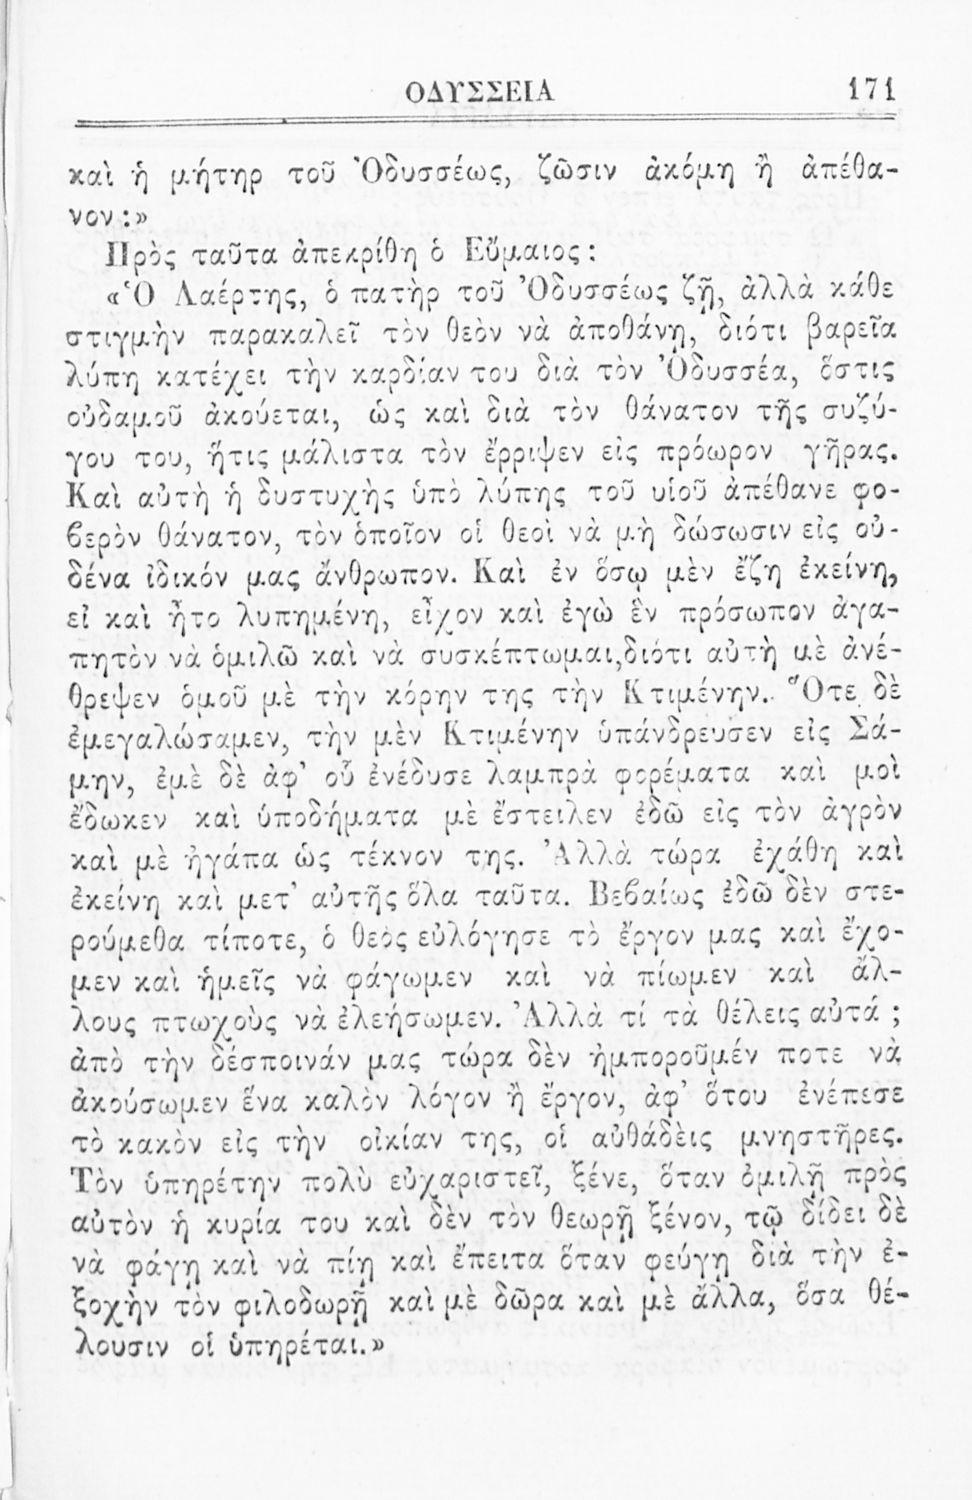 ΟΔΥΣΣΕΙΑ 171
καὶ ἡ μήτηρ τοῦ Ὀδυσσέως, ζῶσιν ἀκόμη ἢ ἀπέθα-
νον ;»
Πρὸς ταῦτα ἀπεκρίθη ὁ Εὔμαιος :
«Ὁ Λαέρτης, ὁ πατὴρ τοῦ Ὀδυσσέως ζῇ, ἀλλὰ κάθε
στιγμὴν παρακαλεῖ τὸν θεὸν νὰ ἀποθάνῃ, διότι βαρεῖα
λύπη κατέχει τὴν καρδίαν του διὰ τὸν Ὀδυσσέα, ὅστις
οὐδαμοῦ ἀκούεται, ὡς καὶ διὰ τὸν θάνατον τῆς συζύ-
γου του, ἥτις μάλιστα τὸν ἔρριψεν εἰς πρόωρον γῆρας.
Καὶ αὐτὴ ἡ δυστυχὴς ὑπὸ λύπης τοῦ υἱοῦ ἀπέθανε φο-
βερὸν θάνατον, τὸν ὁποῖον οἱ θεοὶ νὰ μὴ δώσωσιν εἰς οὐ-
δένα ἰδικόν μας ἄνθρωπον. Καὶ ἐν ὅσῳ μὲν ἔζη ἐκείνη,
εἰ καὶ ἦτο λυπημένη, εἶχον καὶ ἐγὼ ἓν πρόσωπον ἀγα-
πητὸν νὰ ὁμιλῶ καὶ νὰ συσκέπτωμαι, διότι αὐτὴ μὲ ἀνέ-
θρεψεν ὁμοῦ μὲ τὴν κόρην της τὴν Κτιμένην. Ὅτε δὲ
ἐμεγαλώσαμεν, τὴν μὲν Κτιμένην ὑπάνδρευσεν εἰς Σά-
μην, ἐμὲ δὲ ἀφ’ οὗ ἐνέδυσε λαμπρὰ φορέματα καὶ μοὶ
ἔδωκεν καὶ ὑποδήματα μὲ ἔστειλεν ἐδῶ εἰς τὸν ἀγρὸν
καὶ μὲ ἠγάπα ὡς τέκνον της. Ἀλλὰ τώρα ἐχάθη καὶ
ἐκείνη καὶ μετ’ αὐτῆς ὅλα ταῦτα. Βεβαίως ἐδῶ δὲν στε-
ρούμεθα τίποτε, ὁ θεὸς εὐλόγησε τὸ ἔργον μας καὶ ἔχο-
μεν καὶ ἡμεῖς νὰ φάγωμεν καὶ νὰ πίωμεν καὶ ἄλ-
λους πτωχοὺς νὰ ἐλεήσωμεν. Ἀλλὰ τί τὰ θέλεις αὐτά ;
ἀπὸ τὴν δέσποινάν μας τώρα δὲν ἠμποροῦμέν ποτε νὰ
ἀκούσωμεν ἕνα καλὸν λόγον ἢ ἔργον, ἀφ’ ὅτου ἐνέπεσε
τὸ κακὸν εἰς τὴν οἰκίαν της, οἱ αὐθάδεις μνηστῆρες.
Τὸν ὑπηρέτην πολὺ εὐχαριστεῖ, ξένε, ὅταν ὁμιλῇ πρὸς
αὐτὸν ἡ κυρία του καὶ δὲν τὸν θεωρῇ ξένον, τῷ δίδει δὲ
νὰ φάγῃ καὶ νὰ πίῃ καὶ ἔπειτα ὅταν φεύγῃ διὰ τὴν ἐ-
ξοχὴν τὸν φιλοδωρῇ καὶ μὲ δῶρα καὶ μὲ ἄλλα, ὅσα θέ-
λουσιν οἱ ὑπηρέται.»